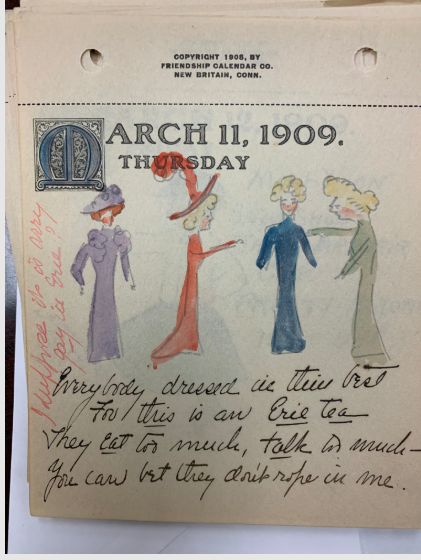 COPYRIGHT 1908, BY
FRIENDSHIP CALENDAR CO.
NEW BRITAIN, CONN.
MARCH 11, 1909.
THURSDAY
I suppose it is very
gay in Erie?
Everybody dressed in their best
For this is an Erie tea
They Eat too much, talk too much—
You can bet they don't rope in me.